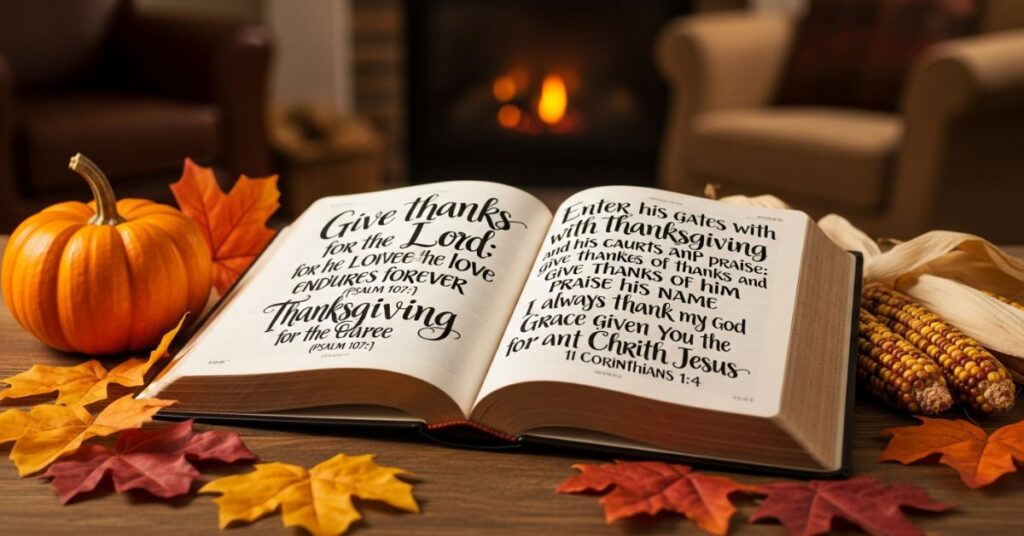 Give thanks
for the Lord;
for he LOIVEE the love
ENDURES FOREVER
(PSALM 107:)
Thanksgiving
for the Oaree
(PSALM 107:)
Enter his GATES with
with Thanksgiving
and his CAURTS ANP PRAISE:
give thankes of thanks and
GIVE THANKS OF HIM
PRAISE HIS NAME
I always thank my God
GRACE GIVEN YOU the
for ant Chrith Jesus
11 CORINTHIANS 1:4